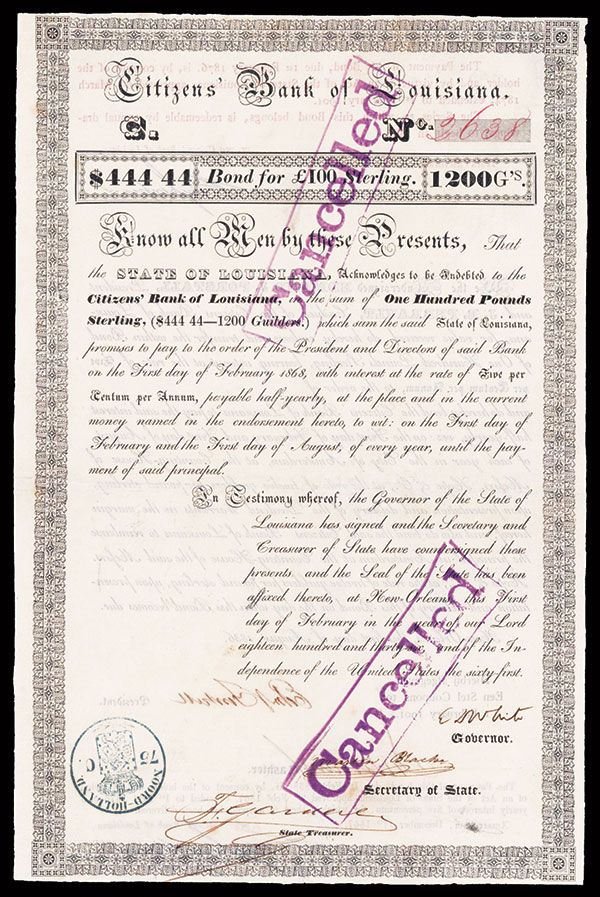 Citizens' Bank of Louisiana.
S. No. 2638
$444 44 Bond for £100 Sterling. 1200 G'S.
Know all Men by these Presents, That
the STATE OF LOUISIANA, Acknowledges to be Indebted to the
Citizens' Bank of Louisiana, in the sum of One Hundred Pounds
Sterling, ($444 44—1200 Guilders.) which sum the said State of Louisiana,
promises to pay to the order of the President and Directors of said Bank
on the First day of February 1868, with interest at the rate of Five per
Centum per Annum, payable half-yearly, at the place and in the current
money named in the endorsement hereto, to wit: on the First day of
February and the First day of August, of every year, until the pay-
ment of said principal.
In Testimony whereof, the Governor of the State of
Louisiana has signed and the Secretary and
Treasurer of State have countersigned these
presents and the Seal of the State has been
affixed thereto, at New-Orleans, this First
day of February in the year of our Lord
eighteen hundred and thirty-six and of the In-
dependence of the United States the sixty-first.
E D White
Governor.
Secretary of State.
State Treasurer.
Cancelled
Cancelled
75 C.
NOORD-HOLLAND